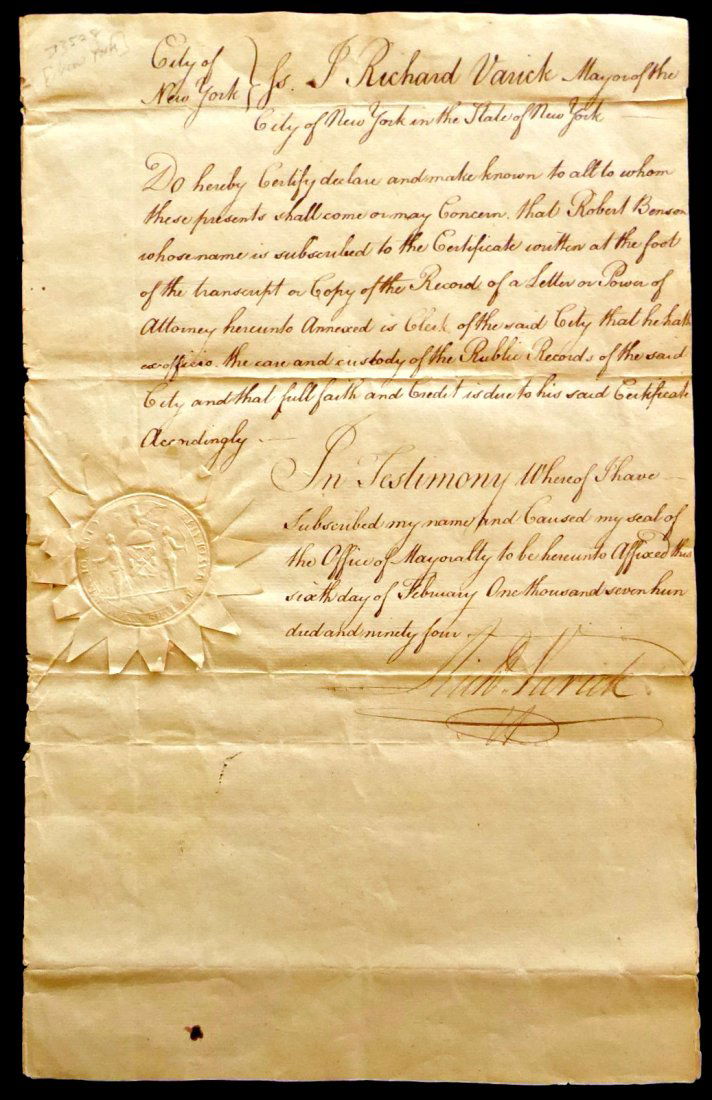 D3528
[New York]
City of
New York } Ss. I Richard Varick Mayor of the
City of New York in the State of New York
Do hereby Certify declare and make known to all to whom
these presents shall come or may Concern. that Robert Benson
whose name is subscribed to the Certificate written at the foot
of the transcript or Copy of the Record of a Letter or Power of
Attorney hereunto Annexed is Clerk of the said City that he hath
ex officio. the care and custody of the Public Records of the said
City and that full faith and Credit is due to his said Certificate
Accordingly
In Testimony Whereof I have
Subscribed my name and Caused my seal of
the Office of Mayoralty to be hereunto Affixed this
sixth day of February One thousand seven hun
dred and ninety four
Richd. Varick